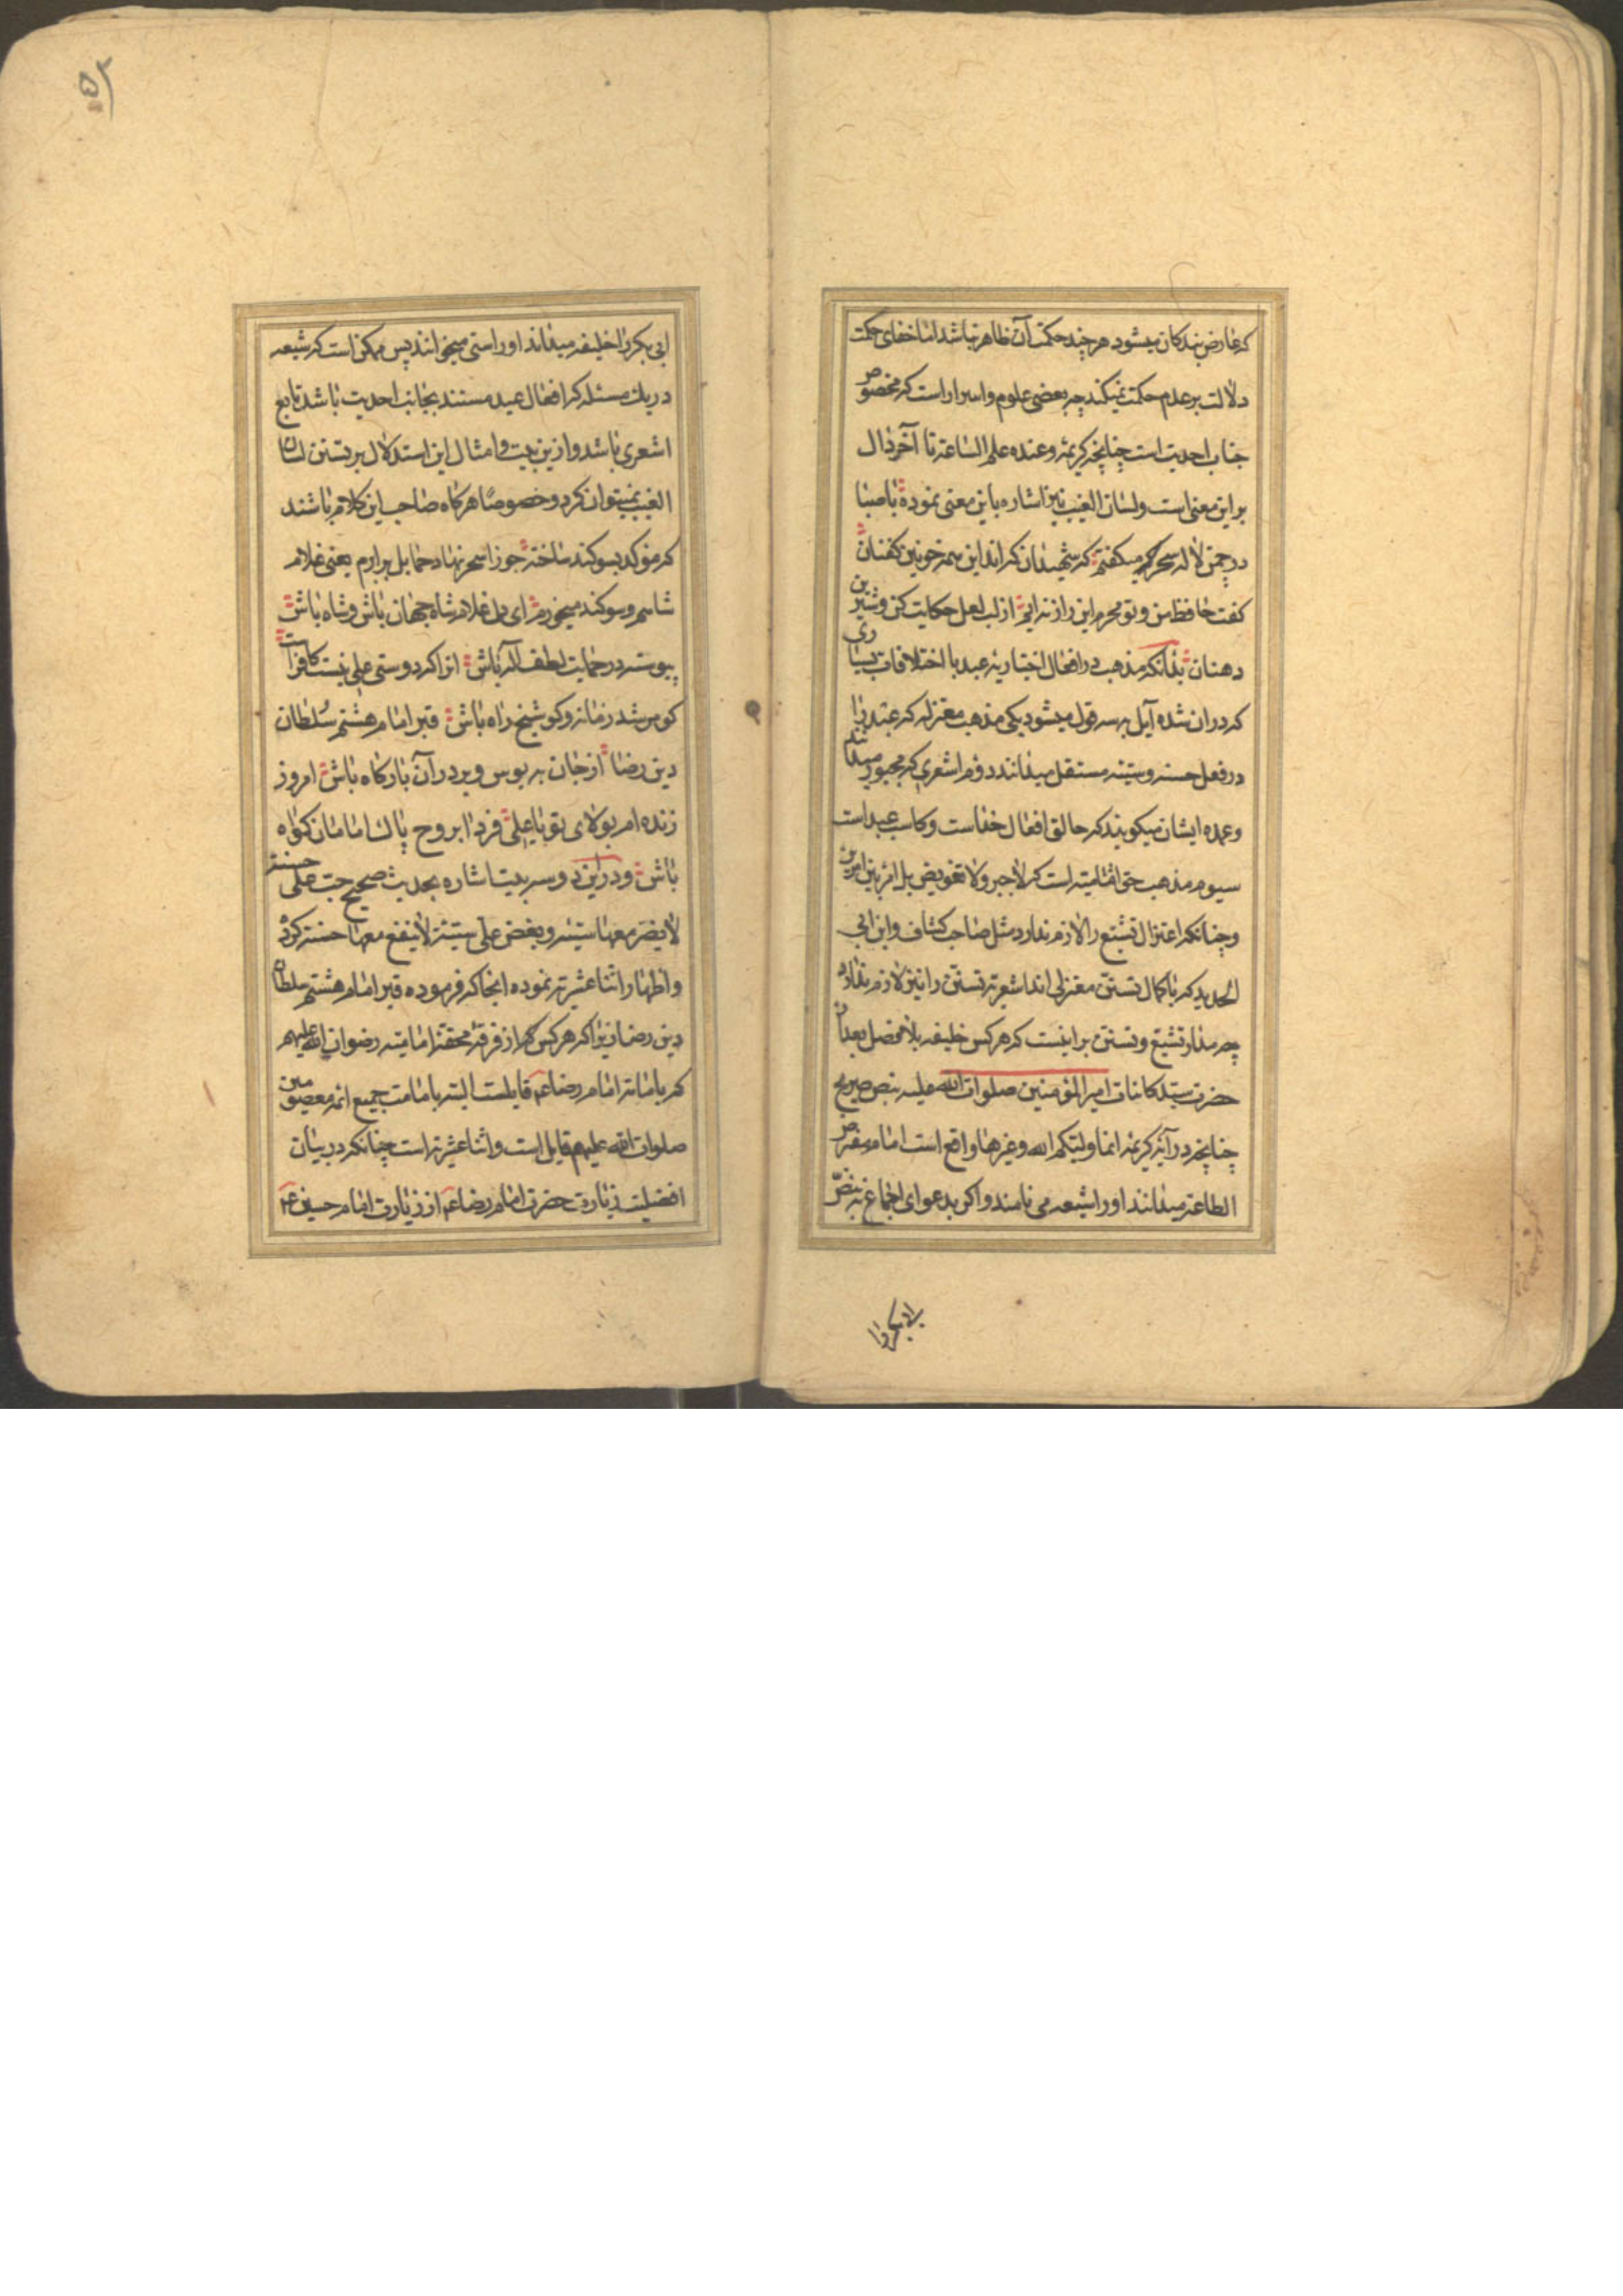 که عارض بندکان میشود هر چند حکمت آن ظاهر نباشد اما خفای حکمت
دلالت بر عدم حکمت نمیکند چه بعضی علوم و اسرار است که مخصوص
جناب احدیت است چنانچه کریمهٔ وعنده علم الساعة تا آخر دال
بر این معنی است ولسان الغیب نیز اشاره باین معنی نموده باصبا
در چمن لاله سحر میکفتم که شهیدان که اند این همه خونین کفنان
کفت حافظ من و تو محرم این راز نه ایم از لب لعل حکایت کن و شیرین
دهنان بدانکه مذهب در افعال اختیاریهٔ عبد با اختلافات بسیاری
که در ان شده آیل به سه قول میشود یکی مذهب معتزله که عبد را
در فعل حسنه و سیئه مستقل میدانند دوم اشعری که مجبور میدانند
وعمده ایشان میکویند که خالق افعال خداست و کاسب عبد است
سیوم مذهب حق امامیه است که لا جبر ولا تفویض بل امر بین امرین
وچنانکه اعتزال تشیع را لازم ندارد مثل صاحب کشاف وابن ابی
الحدید که با کمال تسنن معتزلی اند اشعریة تسنن را نیز لازم ندارد
چه مدار تشیع و تسنن بر اینست که هر کس خلیفه بلا فصل بعد از
حضرت سید کاینات امیر المؤمنین صلوات الله علیه بنص صریح
چنانچه در آیهٔ کریمهٔ انما ولیکم الله وغیرها واقع است امام مفترض
الطاعة میدانند او را شیعه می نامند و اکر بدعوای اجماع نه بنص
ابی بکر را
ابی بکر را خلیفه میداند او را سنی میخوانند پس ممکن است که شیعه
در یک مسئله که افعال عبد مستند بجانب احدیت باشد تابع
اشعری باشد و از این بیت و امثال این استدلال بر تسنن لسان
الغیب نمیتوان کرد و خصوصا هرکاه صاحب این کلام باشند
که موکد بسوکند ساخته جوزا سحر نهاد حمایل برابرم یعنی غلام
شاهم و سوکند میخورم ای دل غلام شاه جهان باش و شاه باش
پیوسته در حمایت لطف اله باش انرا که دوستی علی نیست کافر است
کو مرشد زمانه و کو شیخ راه باش قبر امام هشتم سلطان
دین رضا از جان ببوس و بر در آن بارکاه باش امروز
زنده ام بولای تو یا علی فردا بروح پاک امامان کواه
باش و در این دو سه بیت اشاره بحدیث صحیح حب علی حسنة
لا یضر معها سیئة و بغض علی سیئة لا ینفع معها حسنة کرده
واظهار اثنا عشریة نموده انجا که فرموده قبر امام هشتم سلطان
دین رضا زیرا که هر کس که از فرقهٔ محقهٔ امامیه رضوان الله علیهم
که بامامة امام رضا عم قایلست البته بامامت جمیع ائمه معصومین
صلوات الله علیهم قایل است و اثنا عشریة است چنانکه در بیان
افضلیت زیارت حضرت امام رضا عم از زیارت امام حسین عم